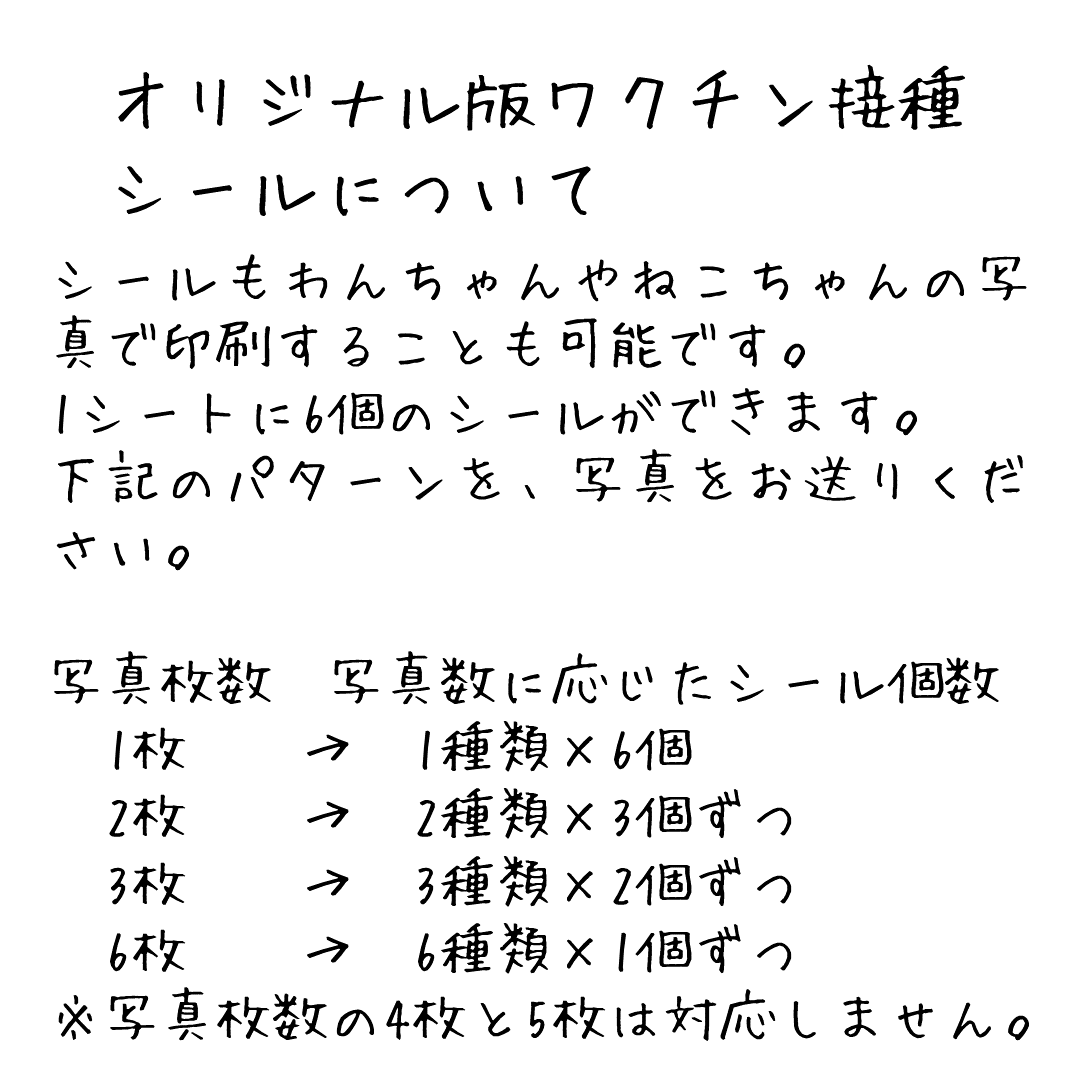 オリジナル版ワクチン接種
シールについて
シールもわんちゃんやねこちゃんの写
真で印刷することも可能です。
1シートに6個のシールができます。
下記のパターンを、写真をお送りくだ
さい。
写真枚数　写真数に応じたシール個数
1枚　→　1種類×6個
2枚　→　2種類×3個ずつ
3枚　→　3種類×2個ずつ
6枚　→　6種類×1個ずつ
※写真枚数の4枚と5枚は対応しません。